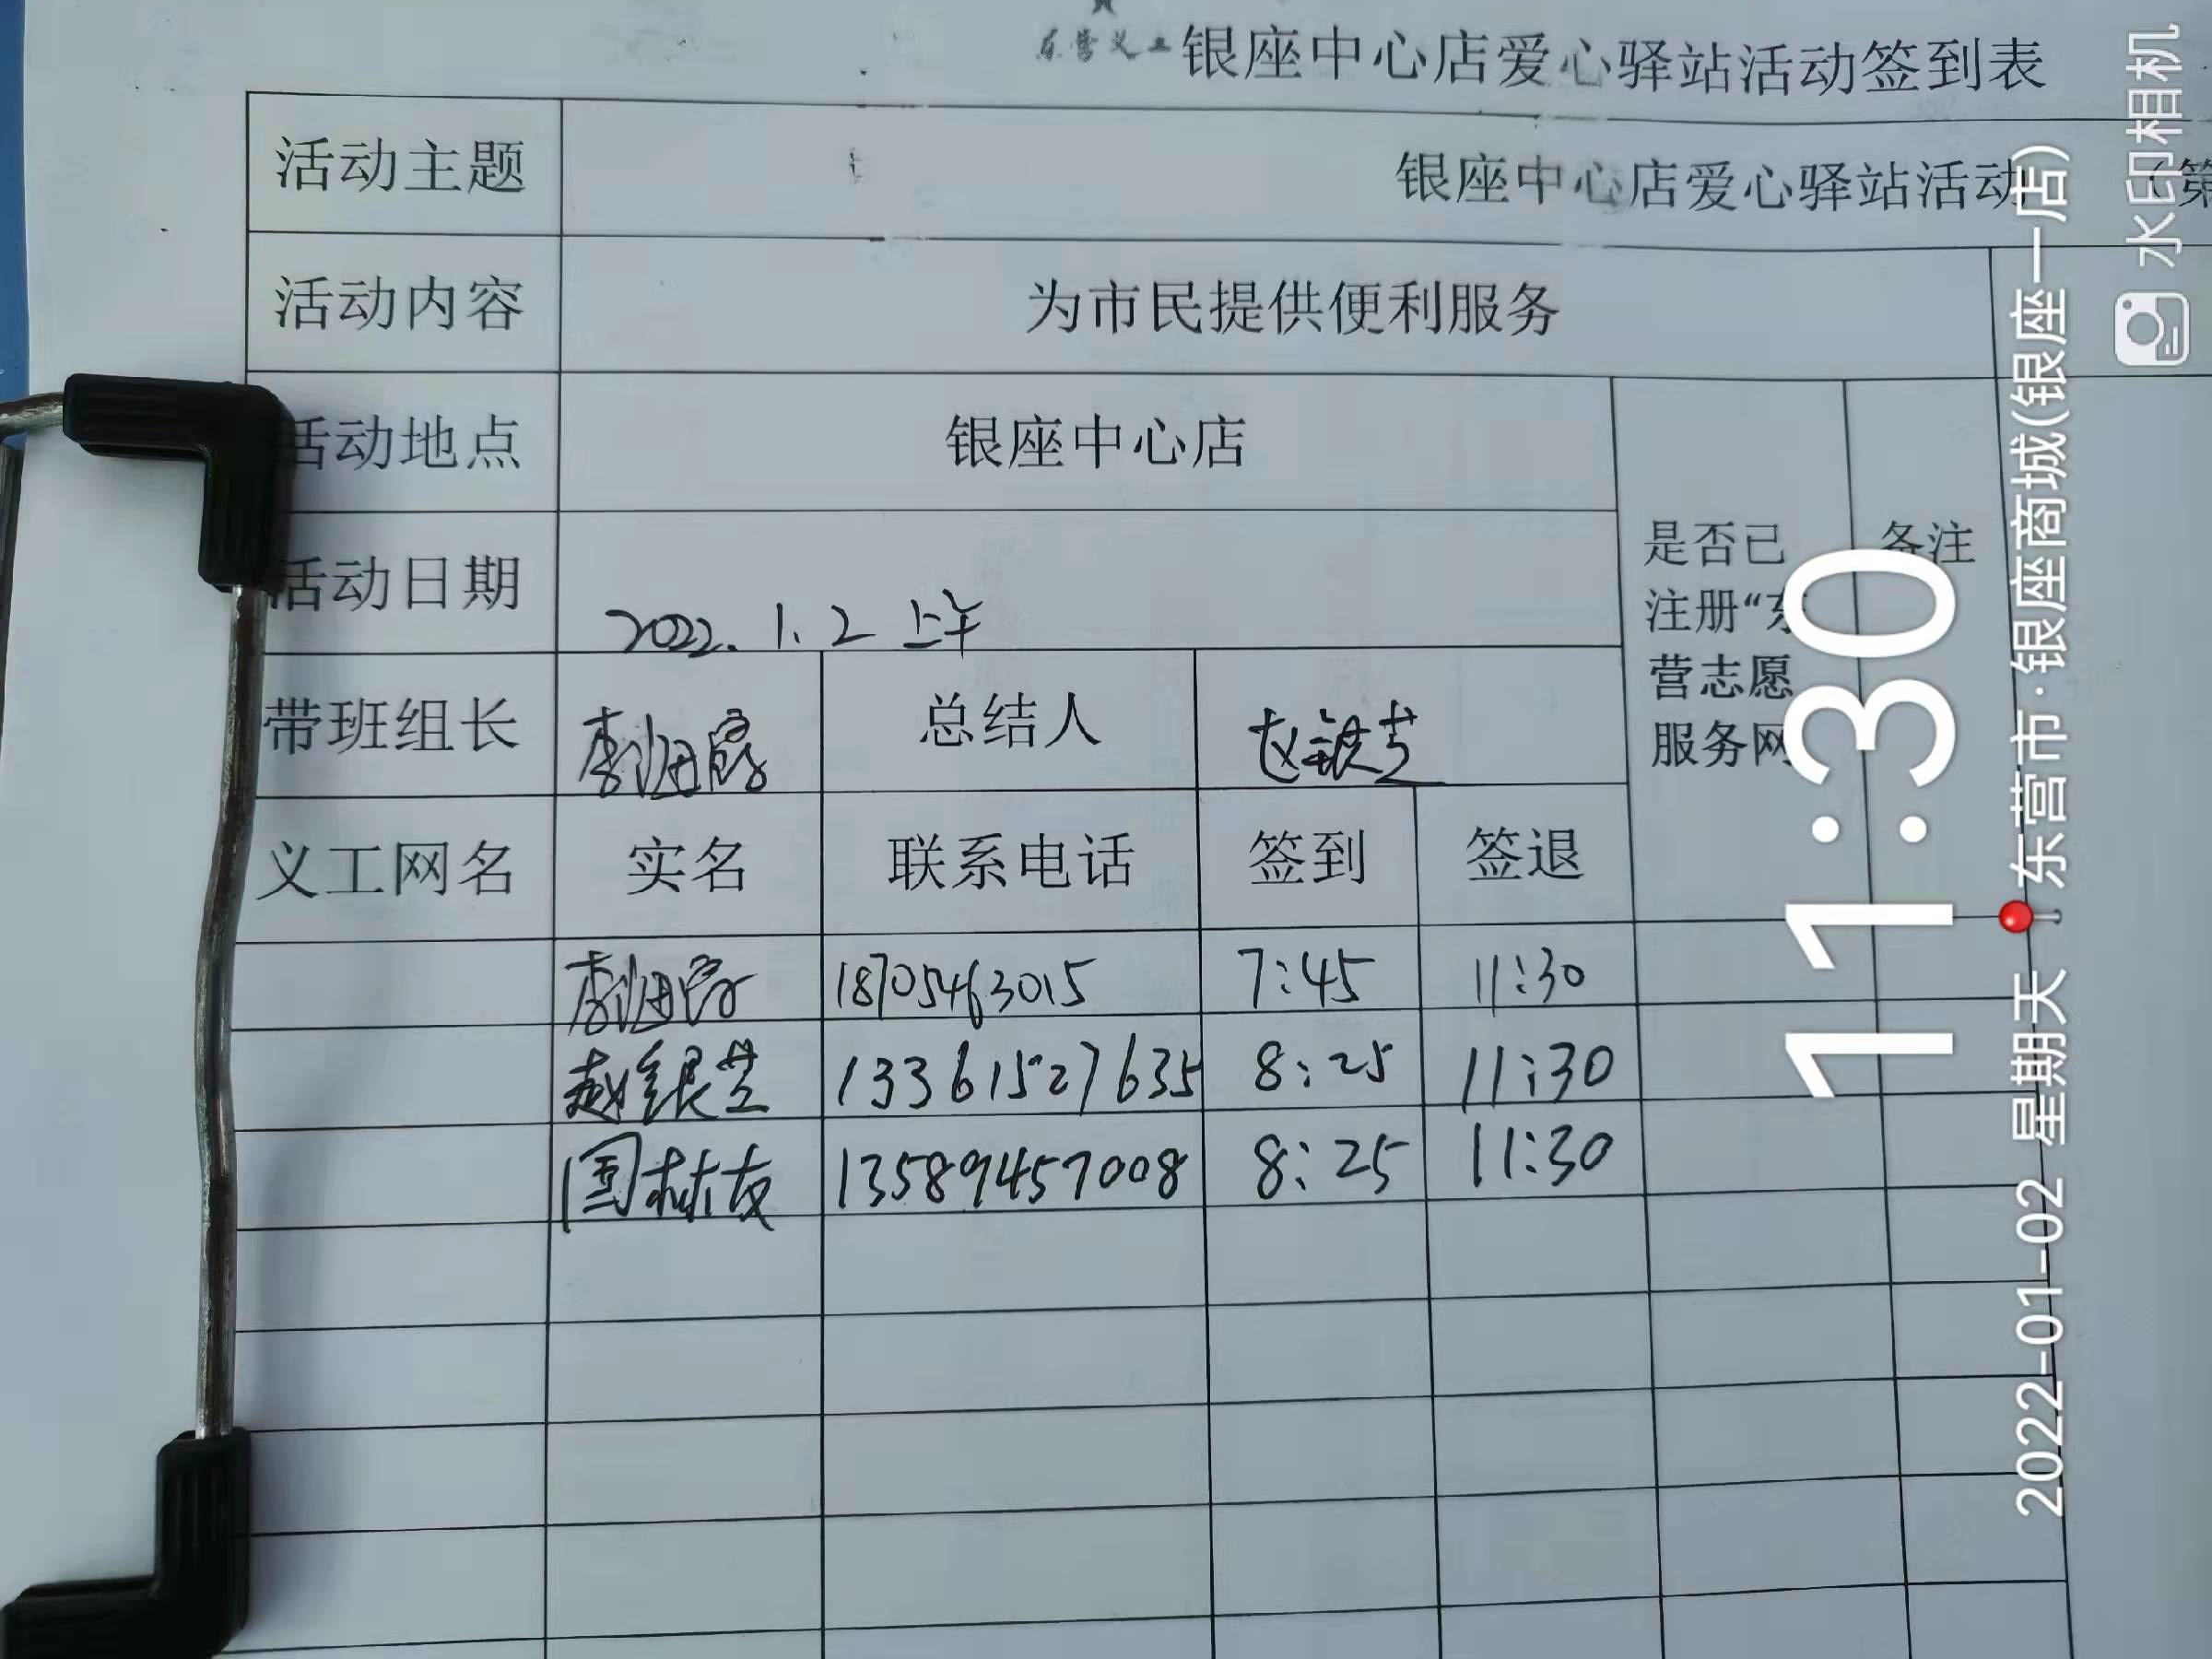 东营义工 银座中心店爱心驿站活动签到表
活动主题 银座中心店爱心驿站活动 (第
活动内容 为市民提供便利服务
活动地点 银座中心店
活动日期 2022.1.2 上午
是否已
注册“东
营志愿
服务网
备注
带班组长 李 总结人 赵银芝
义工网名 实名 联系电话 签到 签退
李 18705463015 7:45 11:30
赵银芝 13361527635 8:25 11:30
国林友 13589457008 8:25 11:30
11:30
2022-01-02 星期天 东营市·银座商城(银座一店)
水印相机